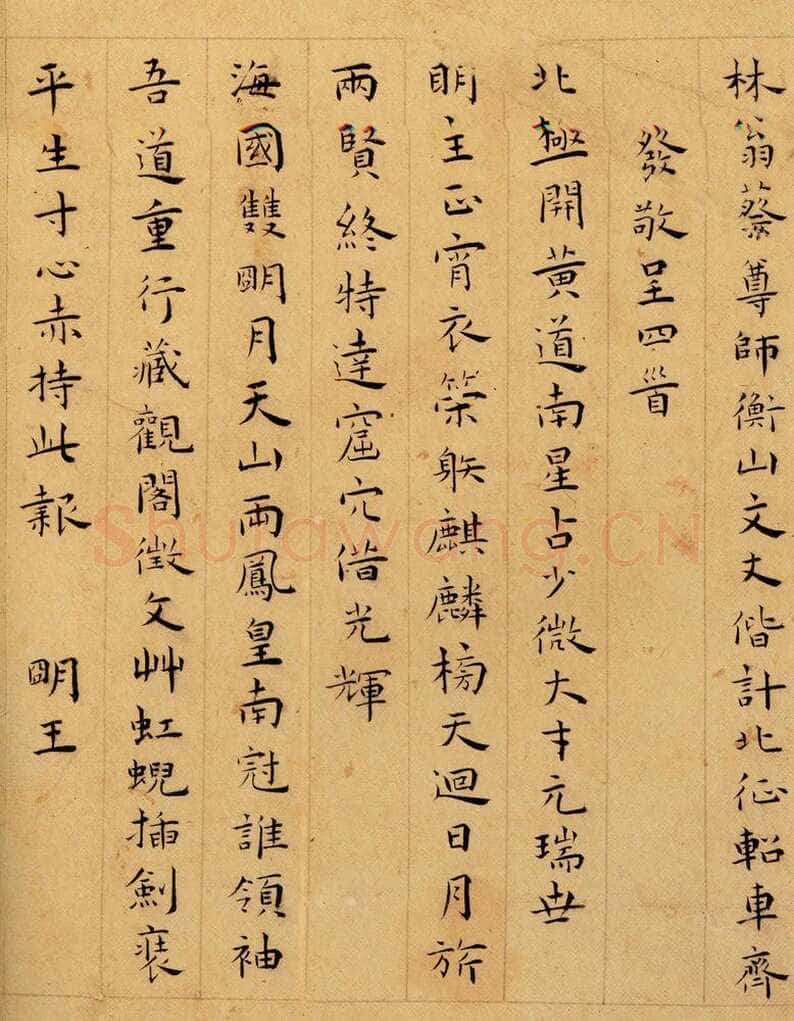 林翁蔡尊師衡山文丈偕計北征軺車齊
發敬呈四首
北極開黃道南星占少微大才元瑞世
明主正宵衣策䠶麒麟榜天迴日月旂
兩賢終特達窟穴借光輝
海國雙明月天山兩鳳皇南冠誰領袖
吾道重行藏觀閣徵文艸虹蜺插劍裝
平生寸心赤持此報 明王
Shufawang.CN